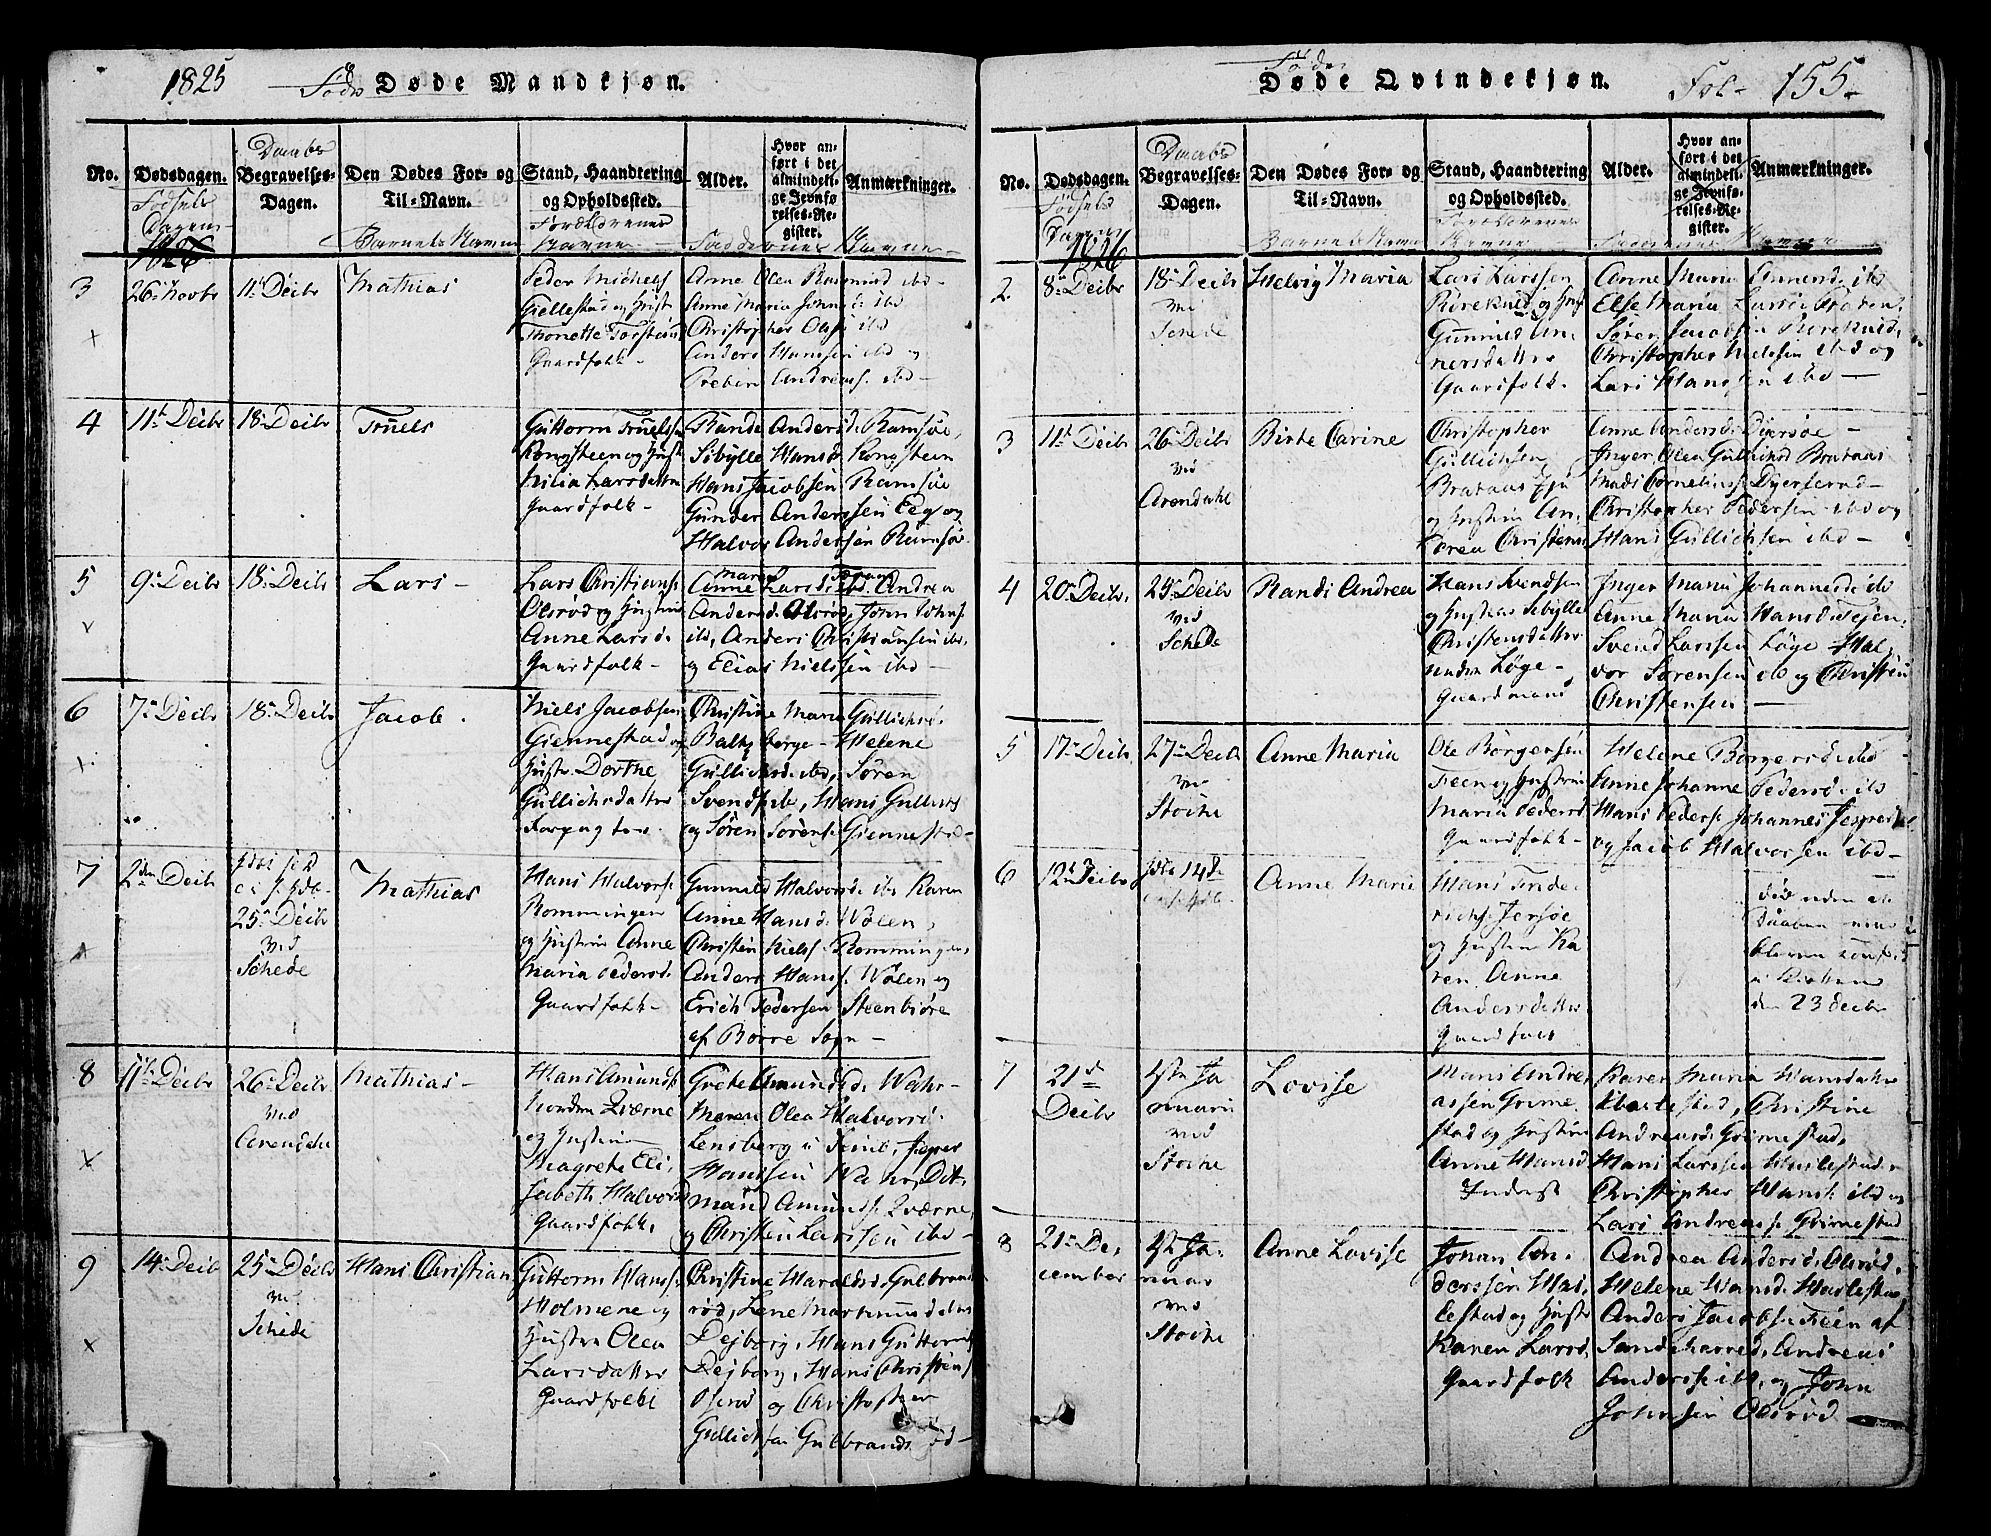 1825
Fødte
Døde Mandkjøn.
No.
Dødsdagen.
Fødsels
Dagen
1826
Daabs
Begravelses-
Dagen.
Den Dødes For- og
Til-Navn.
Barnets Navne
Stand, Haandtering
og Opholdssted.
Forældrenes
Navne
Alder.
Hvor an-
ført i det
almindeli-
ge Jevnfø
relses-Re-
gister.
Anmærkninger.
Faddernes Navne
3
26 Novbr
11te Decbr
Mathias
Peder Michels
Gjellestad og Hustr
Thonette Torstens
Gaardfolk
Anne Olea Rasmusd ibd
Anne Maria Johns ibd
Christopher Ols ibd
Anders Hanssen ibd og
Preben Andreass. ibd
4
11te Decbr
18 Decbr
Truels
Guttorm Truelss
Rongsteen og Hustr
Nilia Larsdatter
Gaardfolk
Rande Andersd. Ramsøe,
Sibylle Hansd Rongsteen
Hans Jacobsen Ramsøe
Gunder Anderssen Eeg og
Halvor Andersen Ramsøe
5
9 Decbr
18 Decbr
Lars
Lars Christians.
Olsrød og Hustrue
Anne Larsd.
Gaardfolk
Maren
Anne Larsd. ibd. Andrea
Andersd. Olsrød, John Johns.
ibd, Anders Christiansen ibd,
og Elias Nielssen ibd
6
7 Decbr
18 Decbr
Jacob
Niels Jacobsen
Giennestad og
Hustr Dorthe
Gullichsdatter
Christine Maria Gullichsd.
Baltzberge Helene
Gullichsd. ibd, Søren
Svends. ib, Hans Gullichs
og Søren Sørens. Giennestad
7
2den Decbr
25 Decbr
ved
Schede
Mathias
Hans Halvors.
Rommingen
og Hustrue Anne
Maria Pedersd.
Gaardfolk
Gunnild Halvorsd. ibd Karen
Anne Hansd. Wølen,
Christen Niels. Rommingen,
Anders Hans. Wølen og
Erich Pedersen Steenbiøre
af Borre Sogn
8
11te Decbr
26 Decbr
ved
Arendahl
Mathias
Hans Amunds.
Nordre Qværne
og Hustrue
Magrete Eli,
sabeth Halvorsd
Gaardfolk
Grete Amundsd. Wahr
Maren Olea Halvorsd.
Lensberg i Semb, Jesper
Hanssen Wahr, Dit,
mand Amunds. Qværne,
og Christen Larssen ibd
9
14 Decb
25 Decbr
ved
Schede
Hans Christian
Guttorm Hanss.
Holmene og
Hustru Olea
Larsdatter
Gaardfolk
Christine Haraldsd. Gulbrans
rød, Lene Marthinusdatter
Dejborg, Hans Guttorms
Dejborg, Hans Christens
og Christopher
Gullichsen Gulbrandsrød
Fødte
Døde Qvindekjøn.
Fol 155
No.
Dødsdagen.
Fødsels
Dagen
1826
Daabs
Begravelses-
Dagen.
Den Dødes For- og
Til-Navn.
Barnets Navne
Stand, Haandtering
og Opholdssted.
Forældrenes
Navne
Alder.
Hvor an-
ført i det
almindeli-
ge Jevnfø-
relses-Re-
gister.
Anmærkninger.
Faddernes Navne
2
8 Decbr
18 Decbr
ved
Schede
Helvig Maria
Lars Larssen
og Hust
Gunnild An
nersdatter
Gaardfolk
Anne Maria ibd
Else Maria
Søren Jacobsen
Christopher Nielssen ibd og
Lars Hanssen ibd
3
11te Decbr
26 Decbr
ved
Arendahl
Birte Carine
Christopher
Gullichsen
Brataas
og Hustrue An,
korea Christens
Anne Andersd. Dyersøe
Inger Olea Gullichsd Brataas
Mads Cornelius
Christopher Pedersen ibd og
Hans Gullichsen ibd
4
20 Decbr.
25 Decbr
ved
Schede
Randi Andrea
Hans Svendsen
og Hustrue Sibylle
Christensdatter
Løge
Gaardmand
Inger Maria Johannesd. ib
Anne Maria Hansd. Fejen,
Svend Larssen Løge Hal,
vor Sørensen ib og Christen
Christensen
5
17 Decbr
27 Decbr
ved
Stocke
Anne Maria
Ole Børgersen
Feen og Hustrue
Maria Pedersd
Gaardfolk
Helene Børgersd. ibd
Anne Johanne Pedersd. ib
Hans Peders. Johannes Jespersen
og Jacob Halvorssen ibd
6
12te Decbr
Anne Marie
Hans Frede
richs. Jersøe
og Hustrue Ka
ren Anne
Andersdatter
Gaardfolk
Daaben
den 23 Decbr
7
21de
Decbr
1ste Ja
nuarii
ved
Stocke
Lovise
Hans Andre,
assen Grime,
stad og Hustrue
Anne Hansd
Inderst
Karen Maria Hansdatter
Andreasd. Grimestad,
Hans Larssen Harlestad
Christopher Hans. ibd og
Lars Andreas. Grimestad
8
21 De,
cember
1ste Ja,
nuar
ved
Stocke
Anne Lovise
Johan An,
derssen Har,
lestad og Hustr
Karen Larsd,
Gaardfolk
Andrea Andersd. Olsrød.
Helene Hansd. Harlestad
Anders Jacobs. Feen af
Sandeherred, Andreas
Anderss. ibd, og John
Johnsen Olsrød